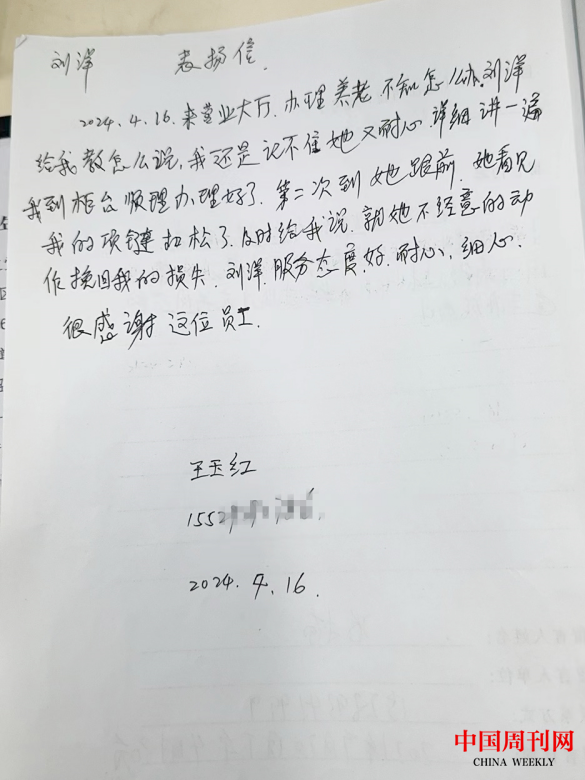 刘洋 表扬信.
2024.4.16.来营业大厅.办理养老 不知怎么办.刘洋
给我教怎么说,我还是记不住她又耐心.详细讲一遍
我到柜台顺理办理好了.第二次到她跟前.她看见
我的项链扣松了.及时给我说.就她不经意的动
作挽回我的损失.刘洋.服务态度好.耐心、细心.
很感谢这位员工.
王玉红
1552
2024.4.16.
中国周刊网
CHINA WEEKLY